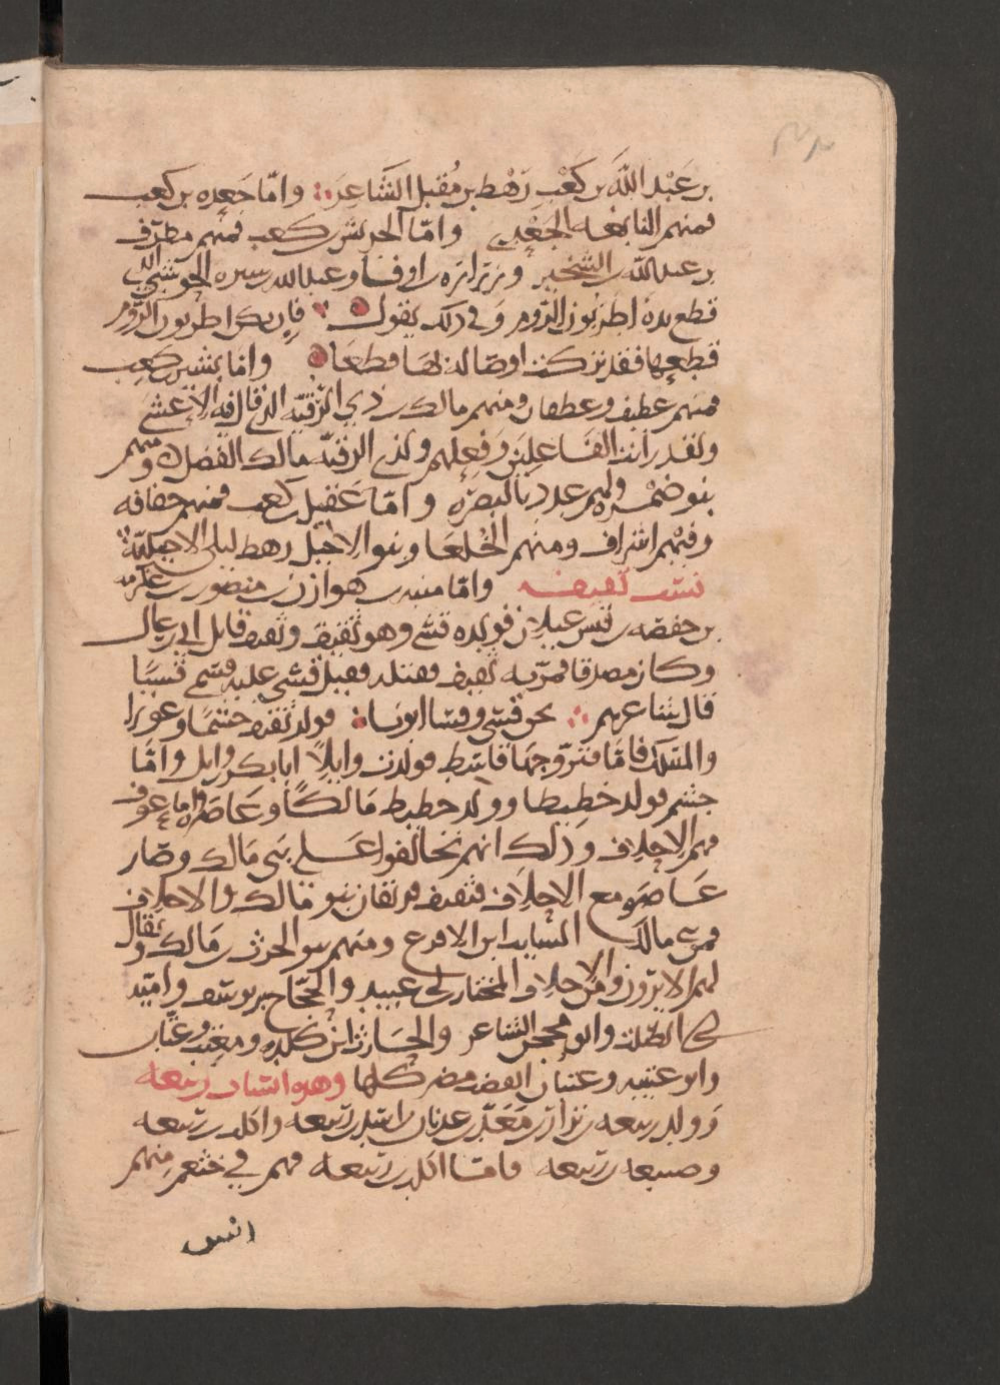 بن عبد الله بن كعب رهط بن مقبل الشاعر ؞ واما جعده بن كعب
فمنهم النابغه الجعدي واما الحريش بن كعب فمنهم مطرف
بن عبد الله بن الشخير وزرارة بن اوفى وعبد الله بن سبره الحرشي الذي
قطع يده اطربون الروم وفي ذلك يقول فإن يكن اطربون الروم
قطعها فقد تركت اوصاله بها قطعا واما قشير بن كعب
فمنهم عطيف وعطفان ومنهم مالك بن ذي الرقيبه الذي قال فيه الاعشى
ولقد رأيت الفاعلين وفعلهم ولذي الرقيبه مالك الفضل ومنهم
بنو ضمره ولهم عدد بالبصره واما عقيل بن كعب فمنهم خفاجه
وفيهم اشراف ومنهم الخلعا وبنو الاخيل رهط ليلى الاخيليه
نسب ثقيف واما منبه بن هوازن بن منصور بن عكرمه
بن خصفه بن قيس عيلان فولده قسي وهو ثقيف وثقيف قاتل ابي رعال
وكان مصدقا فمر به ثقيف فقتله فقيل قسي عليه فسمي قسيا
قال شاعرهم ؞ نحن قسي وقسا ابونا فولد ثقيف جشما وعوفا
والمسك فاما فتزوجها قاسط فولدت وايلا ابا بكر بن وايل واما
جشم فولد حطيطا وولد حطيط مالكا وعاصره واما عوف
فهم الاحلاف وذلك انهم تحالفوا على بني مالك وصار
عاصره مع الاحلاف فثقيف فرقتان بنو مالك والاحلاف
فمن بني مالك السايب ابن الاقرع ومنهم بنو الحرث بن مالك ويقال
لهم الاثرون ومن الاحلاف المختار بن ابي عبيد والحجاج بن يوسف واميه
بن ابي الصلت وابو محجن الشاعر والحارث ابن كلده ومعتب وعتاب
وابو عتيبه وعتبان انقضت مضر كلها وهذه انساب ربيعه
وولد ربيعه بن نزار بن معد بن عدنان اسد بن ربيعه واكلب بن ربيعه
وضبيعه بن ربيعه فاما اكلب بن ربيعه فهم في خثعم منهم
انس